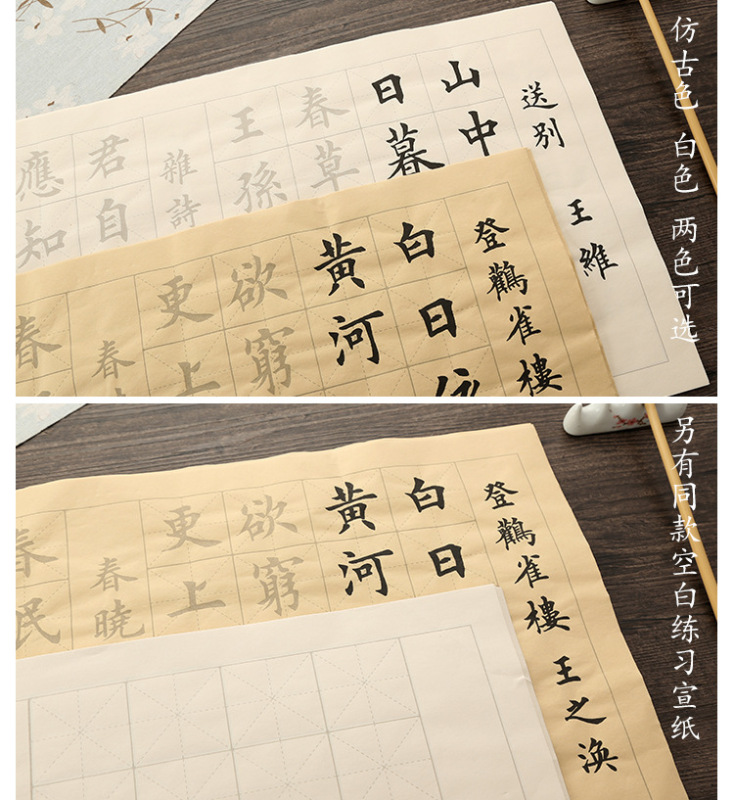 仿古色 白色 两色可选
送别 王維
山中
日暮
春草
王孫
雜詩
君自
應知
登鸛雀樓
白日依
黃河
欲窮
更上
春
春
另有同款空白练习宣纸
登鸛雀樓 王之渙
白日
黃河
欲窮
更上
春曉
春民